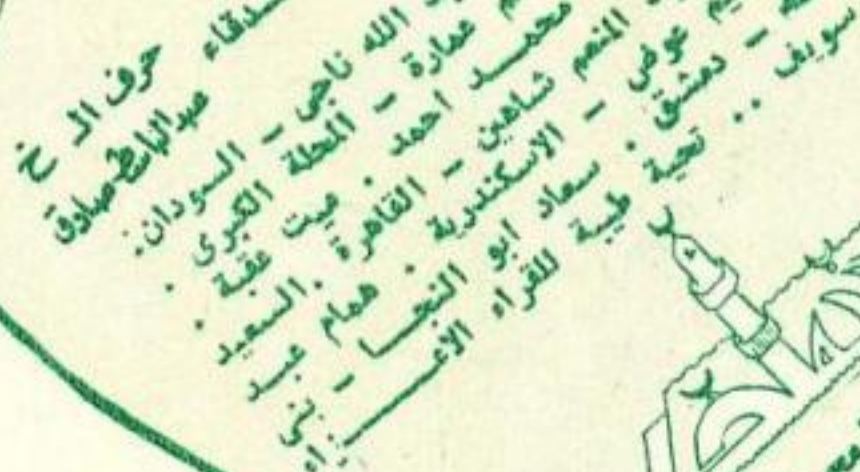 حرف الـ خ
عبدالباسط صادق
الله ناجى – السودان:
عمارة – المحلة الكبرى .
محمد احمد . ميت عقبة .
المنعم شاهين – القاهرة . السعيد
عوض – الاسكندرية . همام عبد
– دمشق . سعاد ابو النجا – بنى
سويف .. تحية طيبة للقراء الاعزاء